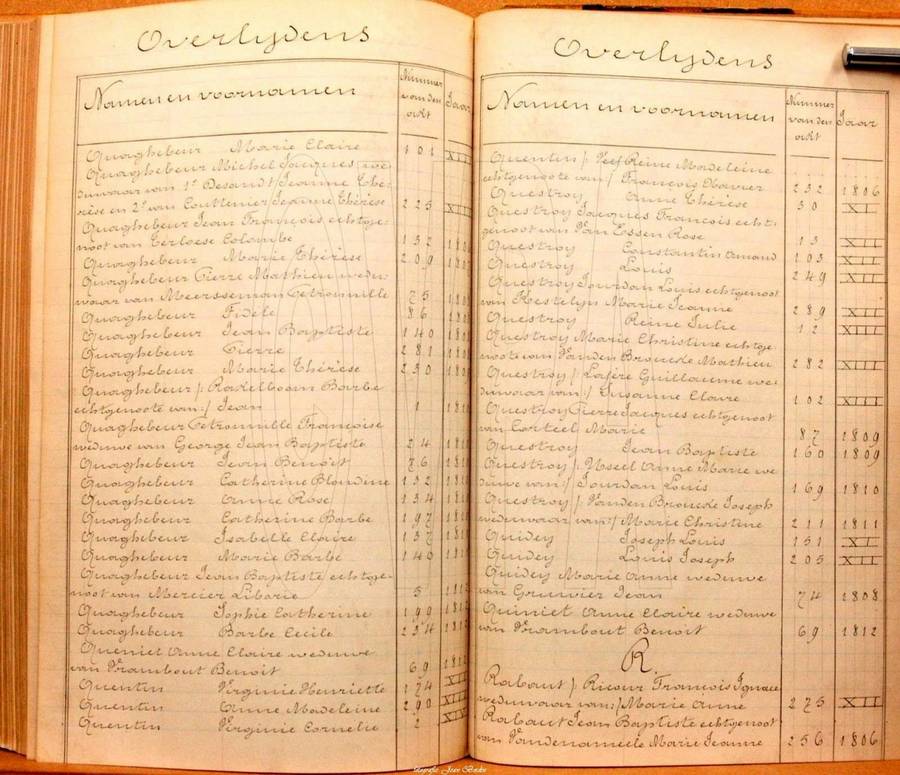 Overlydens
Namen en voornamen
Nummer
van den
ackt
Jaar
Quaghebeur Marie Claire 101 XII
Quaghebeur Michel Jacques we-
duwaar van 1° Desaudt/Jeanne Thé-
rèse en 2° van Couttenier Jeanne Thérèse 225 XII
Quaghebeur Jean François echtge-
noot van Terloese Colombe 132
Quaghebeur Marie Thérèse 209
Quaghebeur Pierre Mathieu wedu-
waar van Meersseman Petronnille 75
Quaghebeur Fidele 86
Quaghebeur Jean Baptiste 140
Quaghebeur Pierre 281
Quaghebeur Marie Thérèse 230
Quaghebeur /: Ravelboom Barbe
echtgenoote van:/ Jean 1
Quaghebeur Petronnille Françoise
weduwe van George Jean Baptiste 24
Quaghebeur Jean Benoit 76
Quaghebeur Catherine Blondine 132
Quaghebeur Anne Rose 134
Quaghebeur Catherine Barbe 197
Quaghebeur Isabelle Claire 137
Quaghebeur Marie Barbe 140
Quaghebeur Jean Baptiste echtge-
noot van Mercier Libarie 5
Quaghebeur Sophie Catherine 199
Quaghebeur Barbe Cecile 234
Queniet Anne Claire weduwe
van Vrambout Benoit 69 1812
Quentin Virginie Henriette 174
Quentin Anne Madeleine 290
Quentin Virginie Cornelie 2
Overlydens
Namen en voornamen
Nummer
van den
ackt
Jaar
Quentin /: Feef Reine Madeleine
echtgenoote van:/ François Xavier 232 1806
Questroy Anne Thérèse 30 XI
Questroy Jacques François echt-
genoot van Van Essen Rose 13 XII
Questroy Constantin Amand 103 XII
Questroy Louis 249 XII
Questroy Jourdan Louis echtgenoot
van Hostelyn Marie Jeanne 289 XII
Questroy Reine Julie 12 XIII
Questroy Marie Christine echtge-
noote van Vanden Broucke Mathieu 282 XIII
Questroy /: Lafère Guillaume we-
duwaar van:/ Susanne Claire 102 XIII
Questroy Pierre Jacques echtgenoot
van Corteel Marie 87 1809
Questroy Jean Baptiste 160 1809
Questroy /: Useel Anne Marie we-
duwe van:/ Jourdan Louis 169 1810
Questroy /: Vanden Broucke Joseph
weduwaar van:/ Marie Christine 211 1811
Quidey Joseph Louis 151 XI
Quidey Louis Joseph 205 XII
Quidey Marie Anne weduwe
van Gruwier Jean 74 1808
Quiniet Anne Claire weduwe
van Vrambout Benoit 69 1812
R.
Rabaut /: Ricour François Ignace
weduwaar van:/ Marie Anne 275 XII
Rabaut Jean Baptiste echtgenoot
van Vandenameele Marie Jeanne 256 1806